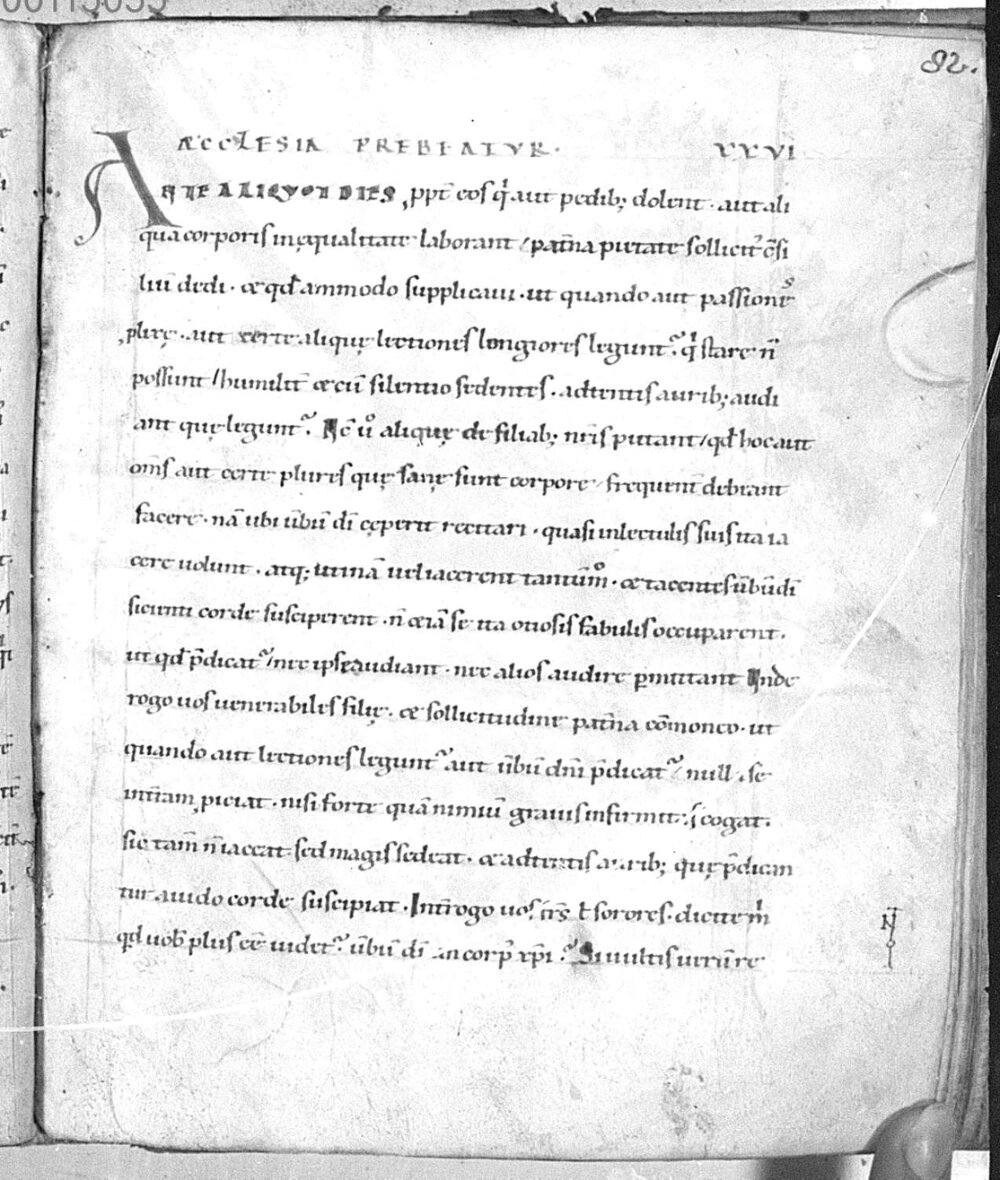 82.
ÆCCLESIA PREBEATUR. XXVI
ANTE ALIQUOT DIES, ꝓpt̄ eos qͥ aut pedib; dolent · aut ali
qua corporis inęqualitate laborant / pat̄na pietate sollicit᷑ c̄si
liū dedi · & qđ ammodo supplicaui · ut quando aut passiones
ꝓlixę · aut certe alique lectiones longiores legunt᷑ · qͥ stare n̄
possunt / humilit̄ & cū silentio sedentes · adtentis aurib; audi
ant quę legunt᷑. Nc̄ uͦ aliquę de filiab; nr̄is putant / qđ hoc aut
om̄s aut certe plures quę sanę sunt corpore / frequent̄ debeant
facere · nā ubi ūbū dī cęperit recitari · quasi in lectulis suis ita ia
cere uolunt · atq; utinā uel iacerent tantūmͦ · & tacentes ūbū dī
sicienti corde susciperent · n̄ &iā se ita otiosis fabulis occuparent ·
ut qđ p̄dicat᷑ / nec ipsę audiant · nec alios audire ꝑmittant Inde
rogo uos uenerabiles filię · & sollicitudine pat̄na cōmoneo · ut
quando aut lectiones legunt᷑ aut ūbū dn̄i p̄dicat᷑ / null se
int̄ram ꝓiciat · nisi forte quā nimiū grauis infirmit᷑ cogat ·
sic tam̄ n̄ iaceat sed magis sedeat · & adtentis aurib; quę p̄dican
tur auido corde suscipiat · Int̄rogo uos fr̄s ł sorores · dicite mͥ
qđ uob̄ plus eē uidet᷑ · ūbū dī an corp᷒ xp̄i ·᷑ Si uultis uerū re
N